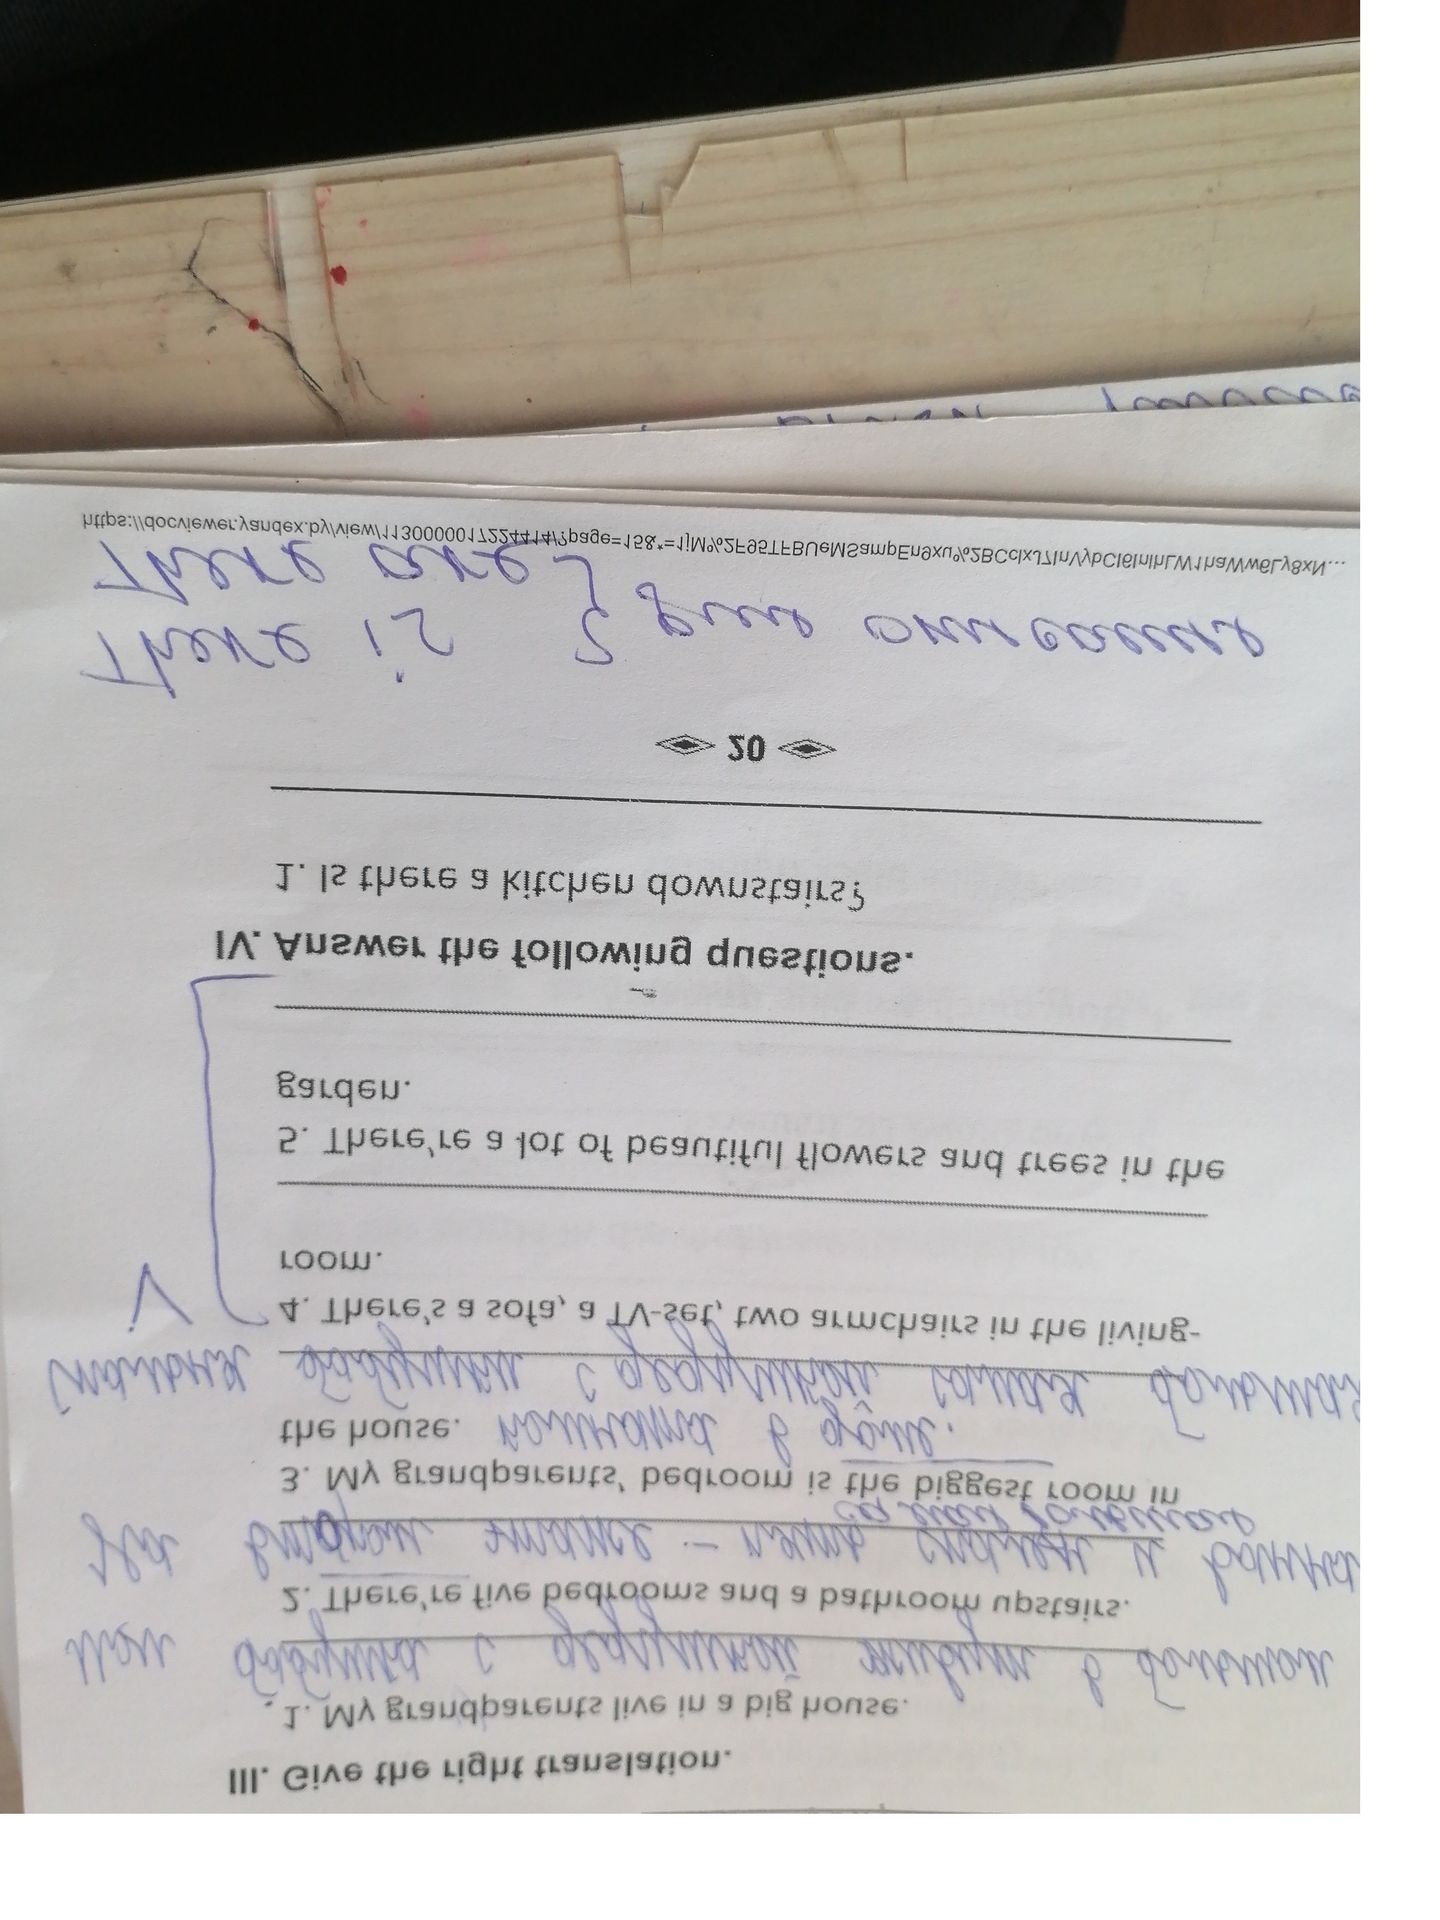 III. Give the right translation.
1. My grandparents live in a big house.
Мои бабушка с дедушкой живут в большом
2. There're five bedrooms and a bathroom upstairs.
На втором этаже – пять спален и ванна
самая большая
3. My grandparents' bedroom is the biggest room in
the house. комната в доме.
Спальня бабушки с дедушкой самая большая
4. There's a sofa, a TV-set, two armchairs in the living-
room.
V
5. There're a lot of beautiful flowers and trees in the
garden.
IV. Answer the following questions.
1. Is there a kitchen downstairs?
20
There is } для описания
There are
https://docviewer.yandex.by/view/1130000017224414/?page=15&*=1jM%2F95TFBUeMSampEn9xu%2BCclxJ7InVybCI6InlhLW1haWw6Ly8xN...